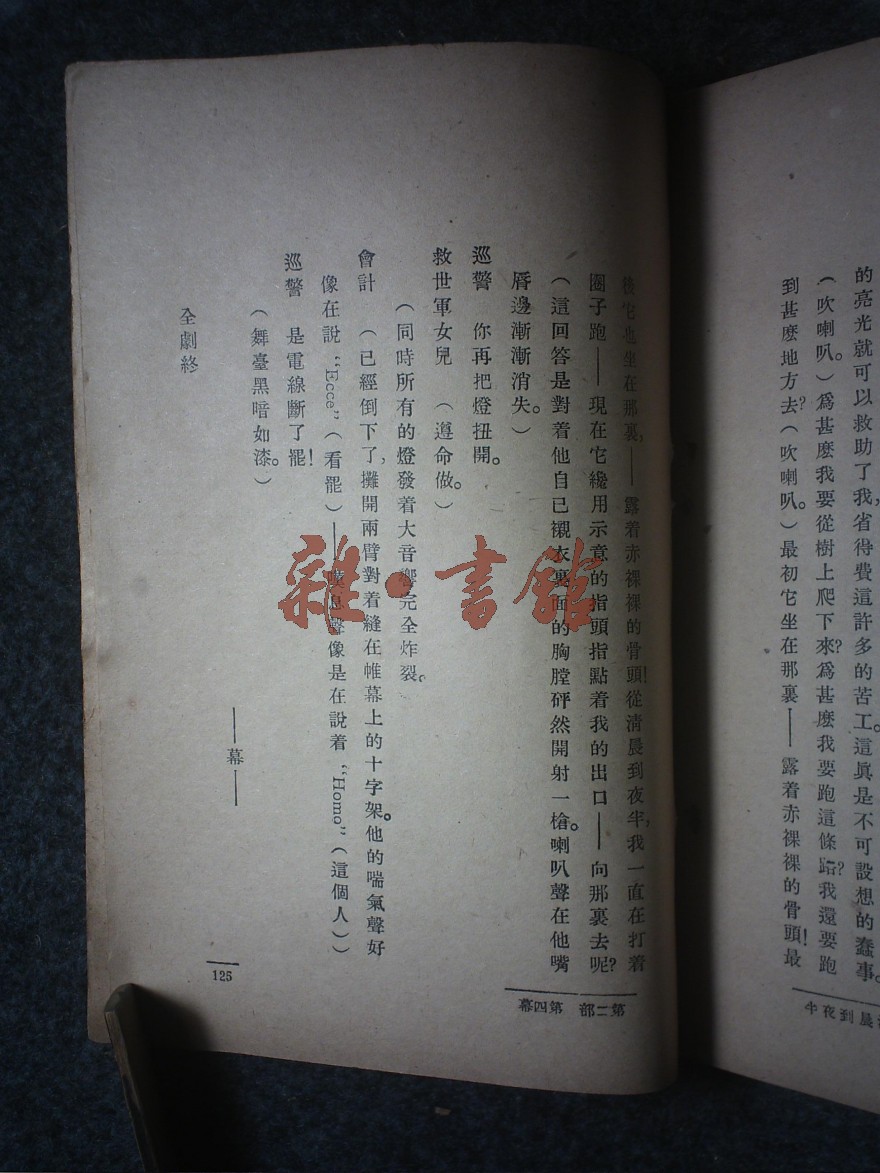 的亮光就可以救助了我，省得費這許多的苦工。這眞是不可設想的蠢事。
（吹喇叭。）爲甚麽我要從樹上爬下來？爲甚麽我要跑這條路？我還要跑
到甚麽地方去？（吹喇叭。）最初它坐在那裏——露着赤裸裸的骨頭！最
晨到夜半
後它也坐在那裏，——露着赤裸裸的骨頭！從淸晨到夜半，我一直在打着
圈子跑——現在它纔用示意的指頭指點着我的出口——向那裏去呢？
（這回答是對着他自已襯衣裏面的胸膛砰然開射一槍。喇叭聲在他嘴
脣邊漸漸消失。）
巡警　你再把燈扭開。
救世軍女兒　（遵命做。）
（同時所有的燈發着大音響完全炸裂。
會計　（已經倒下了，攤開兩臂對着縫在帷幕上的十字架。他的喘氣聲好
像在說“Ecce”（看罷）——嘆息聲像是在說着“Homo”（這個人））
巡警　是電線斷了罷！
（舞臺黑暗如漆。）
——幕——
全劇終
第二部　第四幕
125
雜·書館